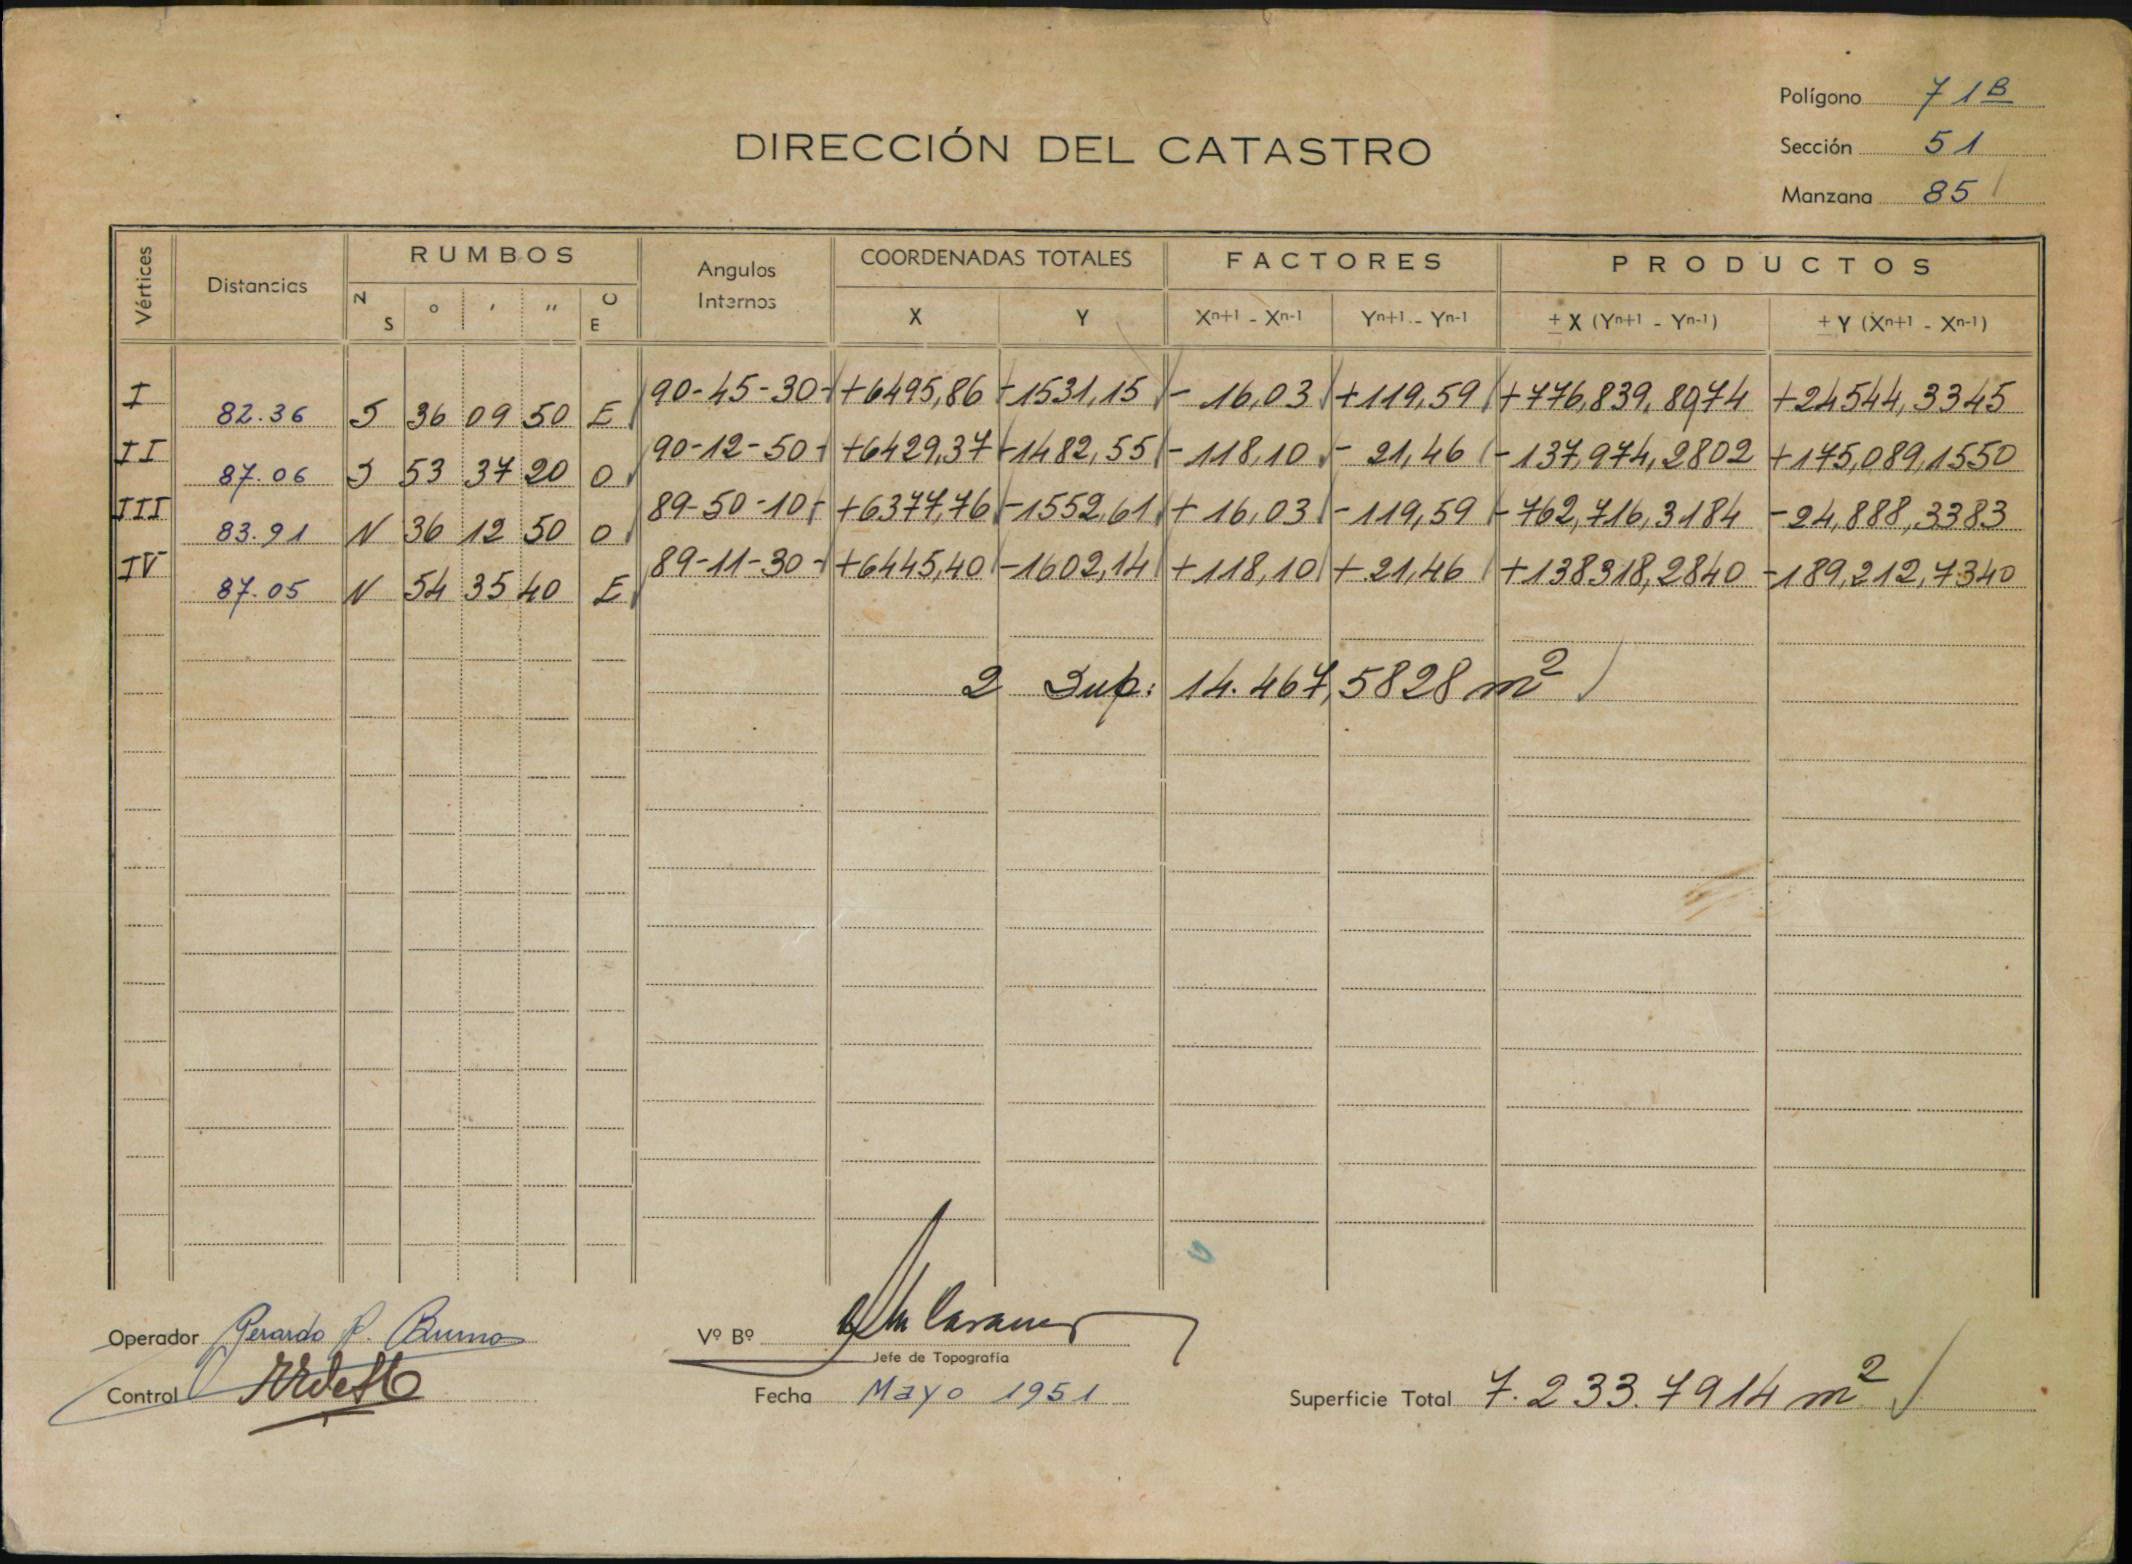 Polígono 71B
DIRECCIÓN DEL CATASTRO
Sección 51
Manzana 85
Vértices Distancias RUMBOS Angulos Internos COORDENADAS TOTALES FACTORES PRODUCTOS
N S ° ' " O E X Y Xn+1 - Xn-1 Yn+1 - Yn-1 ± X (Yn+1 - Yn-1) ± Y (Xn+1 - Xn-1)
I 90-45-30 +6495,86 -1531,15 - 16,03 +119,59 +776,839,8974 +24544,3345
82.36 S 36 09 50 E
II 90-12-50 +6429,37 -1482,55 -118,10 - 21,46 -137,974,2802 +175,089,1550
87.06 S 53 37 20 O
III 89-50-10 +6377,76 -1552,61 + 16,03 -119,59 -762,716,3184 -24,888,3383
83.91 N 36 12 50 O
IV 89-11-30 +6445,40 -1602,14 +118,10 + 21,46 +138318,2840 -189,212,7340
87.05 N 54 35 40 E
2 Sup: 14.467,5828 m2
Operador Gerardo P. Bruno
Vº Bº
Jefe de Topografía
Control
Fecha Mayo 1951
Superficie Total 7.233.7914 m2